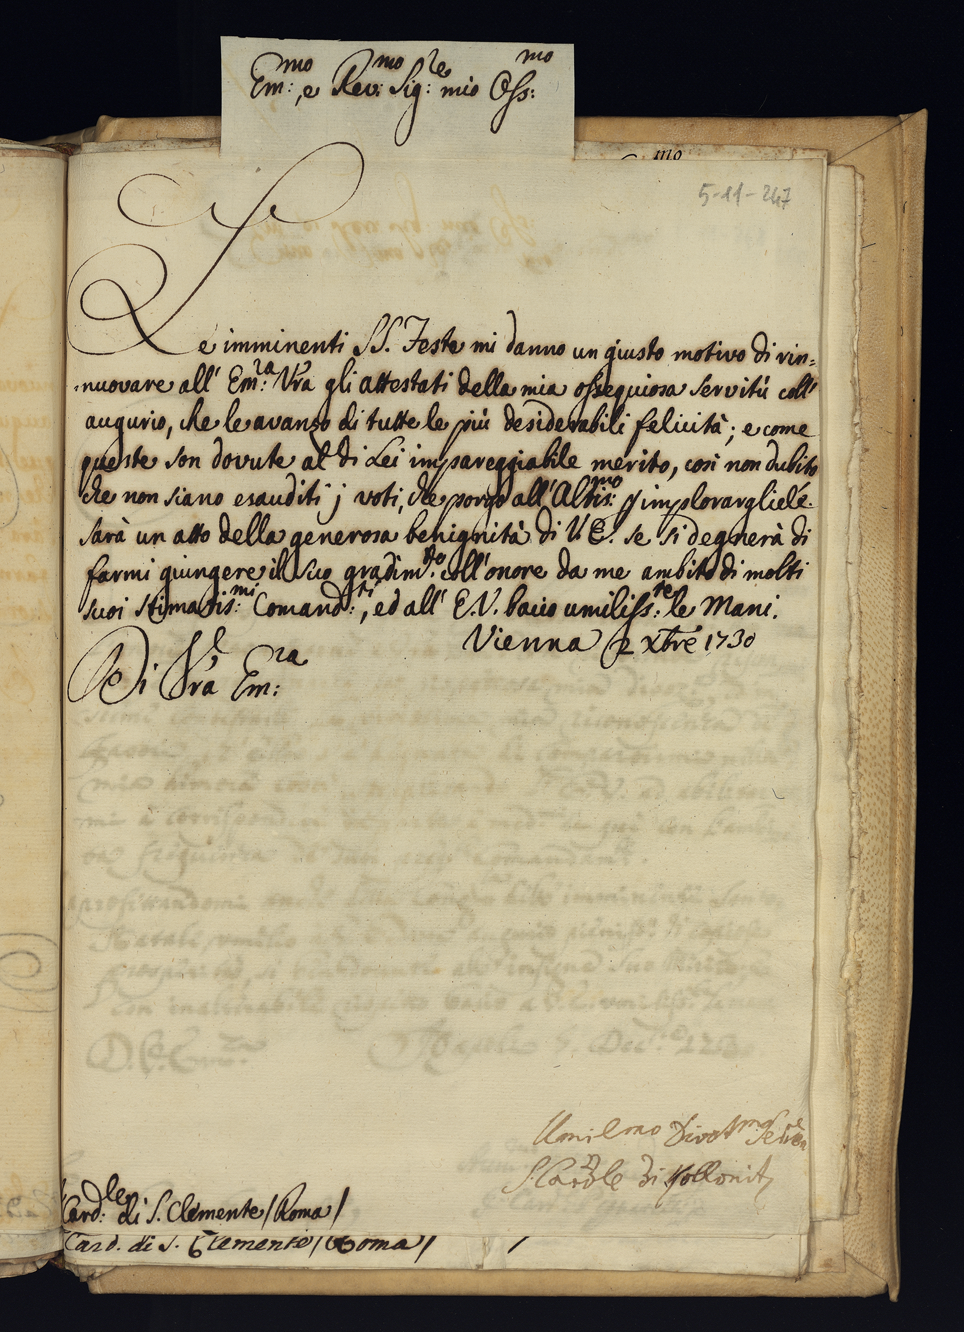 Em:mo, e Rev:mo Sig:re mio Oss:mo
mo
5-11-247
Le imminenti SS. Feste mi danno un giusto motivo di rin=
nuovare all' Em:za Vra gli attestati della mia ossequiosa servitù coll'
augurio, che le avanzo di tutte le più desiderabili felicità; e come
queste son dovute al di Lei impareggiabile merito, così non dubito
che non siano esauditi j voti, che porgo all' Altis:mo p implorargliele.
Sarà un atto della generosa benignità di V. E. se si degnerà di
farmi giungere il suo gradim:to coll' onore da me ambito di molti
suoi stimatis:mi Comand:ti, ed all' E.V. bacio umiliss:te le Mani.
Vienna 2 Xbre 1730
Di Vra Em:za
Umilmo Divotmo Serre
S. Cardle di Kollonitz
Card:le di S. Clemente / Roma /
Card. di S. Clemente / Roma /